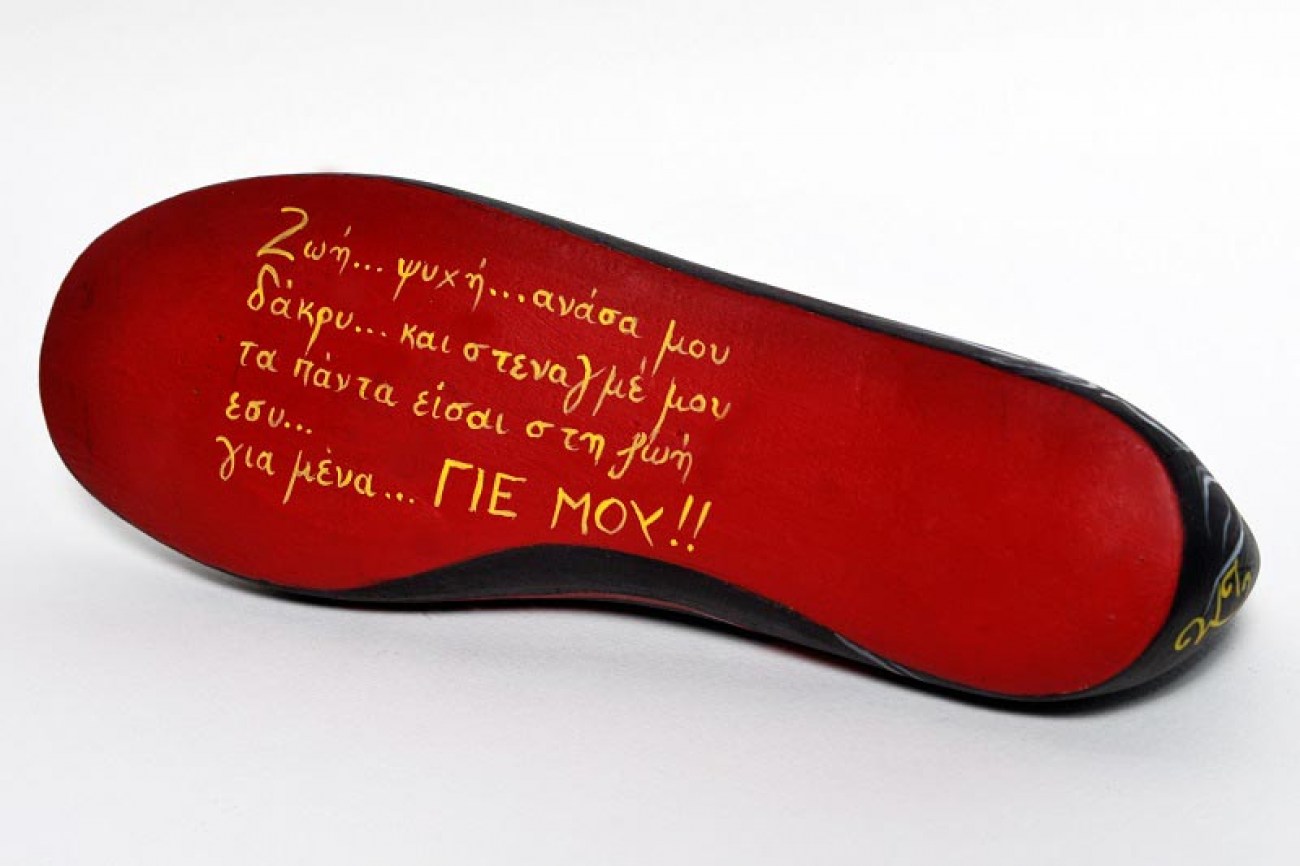 Ζωή... ψυχή... ανάσα μου
δάκρυ... και στεναγμέ μου
τα πάντα είσαι στη ζωή
εσυ...
για μένα... ΓΙΕ ΜΟΥ!!